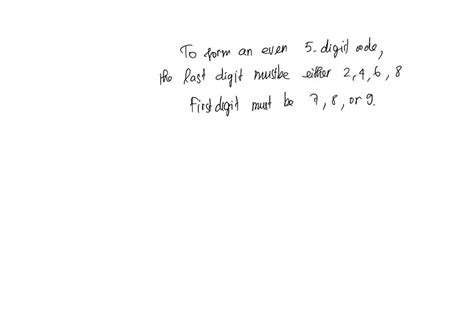 To form an even 5-digit code,
the last digit must be either 2,4,6,8
First digit must be 7, 8, or 9.